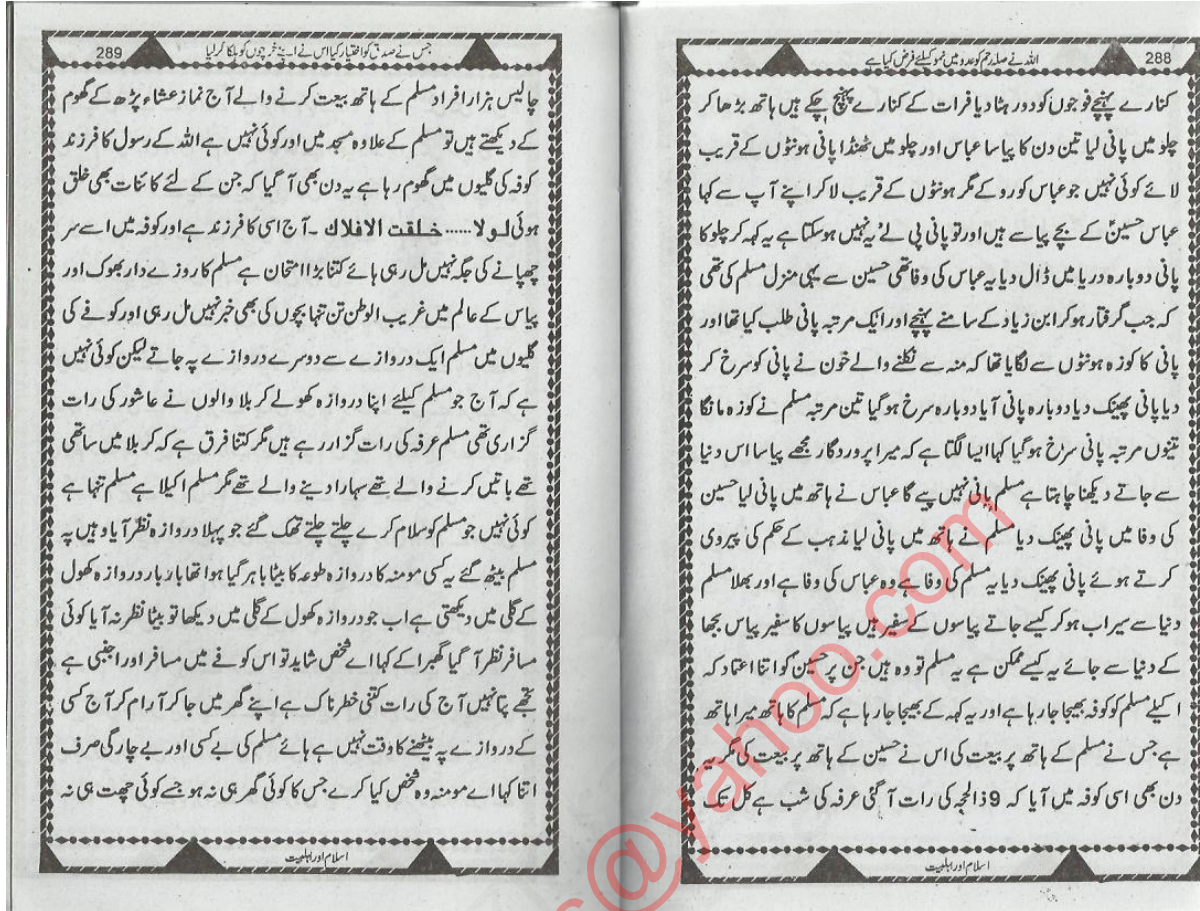 288
اللہ نے صلہ رحم کو عدد میں نمو کیلئے فرض کیا ہے
کنارے پہنچے فوجوں کو دور ہٹا دیا فرات کے کنارے پہنچ چکے ہیں ہاتھ بڑھا کر
چلو میں پانی لیا تین دن کا پیاسا عباس اور چلو میں ٹھنڈا پانی ہونٹوں کے قریب
لائے کوئی نہیں جو عباس کو روکے مگر ہونٹوں کے قریب لا کر اپنے آپ سے کہا
عباس حسینؑ کے بچے پیاسے ہیں اور تو پانی پی لے یہ نہیں ہو سکتا ہے یہ کہہ کر چلو کا
پانی دوبارہ دریا میں ڈال دیا یہ عباس کی وفا تھی حسین سے یہی منزل مسلم کی تھی
کہ جب گرفتار ہو کر ابن زیاد کے سامنے پہنچے اور ایک مرتبہ پانی طلب کیا تھا اور
پانی کا کوزہ ہونٹوں سے لگایا تھا کہ منہ سے نکلنے والے خون نے پانی کو سرخ کر
دیا پانی پھینک دیا دوبارہ پانی آیا دوبارہ سرخ ہو گیا تین مرتبہ مسلم نے کوزہ مانگا
تینوں مرتبہ پانی سرخ ہو گیا کہا ایسا لگتا ہے کہ میرا پروردگار مجھے پیاسا اس دنیا
سے جاتے دیکھنا چاہتا ہے مسلم پانی نہیں پیے گا عباس نے ہاتھ میں پانی لیا حسین
کی وفا میں پانی پھینک دیا مسلم نے ہاتھ میں پانی لیا مذہب کے حکم کی پیروی
کرتے ہوئے پانی پھینک دیا یہ مسلم کی وفا ہے وہ عباس کی وفا ہے اور بھلا مسلم
دنیا سے سیراب ہو کر کیسے جاتے پیاسوں کے سفیر ہیں پیاسوں کا سفیر پیاس بجھا
کے دنیا سے جائے یہ کیسے ممکن ہے یہ مسلم تو وہ ہیں جن پر حسین کو اتنا اعتماد کہ
اکیلے مسلم کو کوفہ بھیجا جا رہا ہے اور یہ کہہ کے بھیجا جا رہا ہے کہ مسلم کا ہاتھ میرا ہاتھ
ہے جس نے مسلم کے ہاتھ پر بیعت کی اس نے حسین کے ہاتھ پر بیعت کی مگر یہ
دن بھی اسی کوفہ میں آیا کہ 9 ذالحجہ کی رات آ گئی عرفہ کی شب ہے کل تک
اسلام اور اہلبیت
289
جس نے صدق کو اختیار کیا اس نے اپنے خرچوں کو ہلکا کر لیا
چالیس ہزار افراد مسلم کے ہاتھ بیعت کرنے والے آج نماز عشاء پڑھ کے گھوم
کے دیکھتے ہیں تو مسلم کے علاوہ مسجد میں اور کوئی نہیں ہے اللہ کے رسول کا فرزند
کوفہ کی گلیوں میں گھوم رہا ہے یہ دن بھی آ گیا کہ جن کے لئے کائنات بھی خلق
ہوئی لولا...... خلقت الافلاك ۔ آج اسی کا فرزند ہے اور کوفہ میں اسے سر
چھپانے کی جگہ نہیں مل رہی ہائے کتنا بڑا امتحان ہے مسلم کا روزے دار بھوک اور
پیاس کے عالم میں غریب الوطن تن تنہا بچوں کی بھی خبر نہیں مل رہی اور کوفے کی
گلیوں میں مسلم ایک دروازے سے دوسرے دروازے پہ جاتے لیکن کوئی نہیں
ہے کہ آج جو مسلم کیلئے اپنا دروازہ کھولے کربلا والوں نے عاشور کی رات
گزاری تھی مسلم عرفہ کی رات گزار رہے ہیں مگر کتنا فرق ہے کہ کربلا میں ساتھی
تھے باتیں کرنے والے تھے سہارا دینے والے تھے مگر مسلم اکیلا ہے مسلم تنہا ہے
کوئی نہیں جو مسلم کو سلام کرے چلتے چلتے تھک گئے جو پہلا دروازہ نظر آیا وہیں پہ
مسلم بیٹھ گئے یہ کسی مومنہ کا دروازہ طوعہ کا بیٹا باہر گیا ہوا تھا بار بار دروازہ کھول
کے گلی میں دیکھتی ہے اب جو دروازہ کھول کے گلی میں دیکھا تو بیٹا نظر نہ آیا کوئی
مسافر نظر آ گیا گھبرا کے کہا اے شخص شاید تو اس کوفے میں مسافر اور اجنبی ہے
تجھے پتا نہیں آج کی رات کتنی خطرناک ہے اپنے گھر میں جا کر آرام کر آج کسی
کے دروازے پہ بیٹھنے کا وقت نہیں ہے ہائے مسلم کی بے کسی اور بے چارگی صرف
اتنا کہا اے مومنہ وہ شخص کیا کرے جس کا کوئی گھر ہی نہ ہو جسے کوئی چھت ہی نہ
اسلام اور اہلبیت
s@yahoo.com